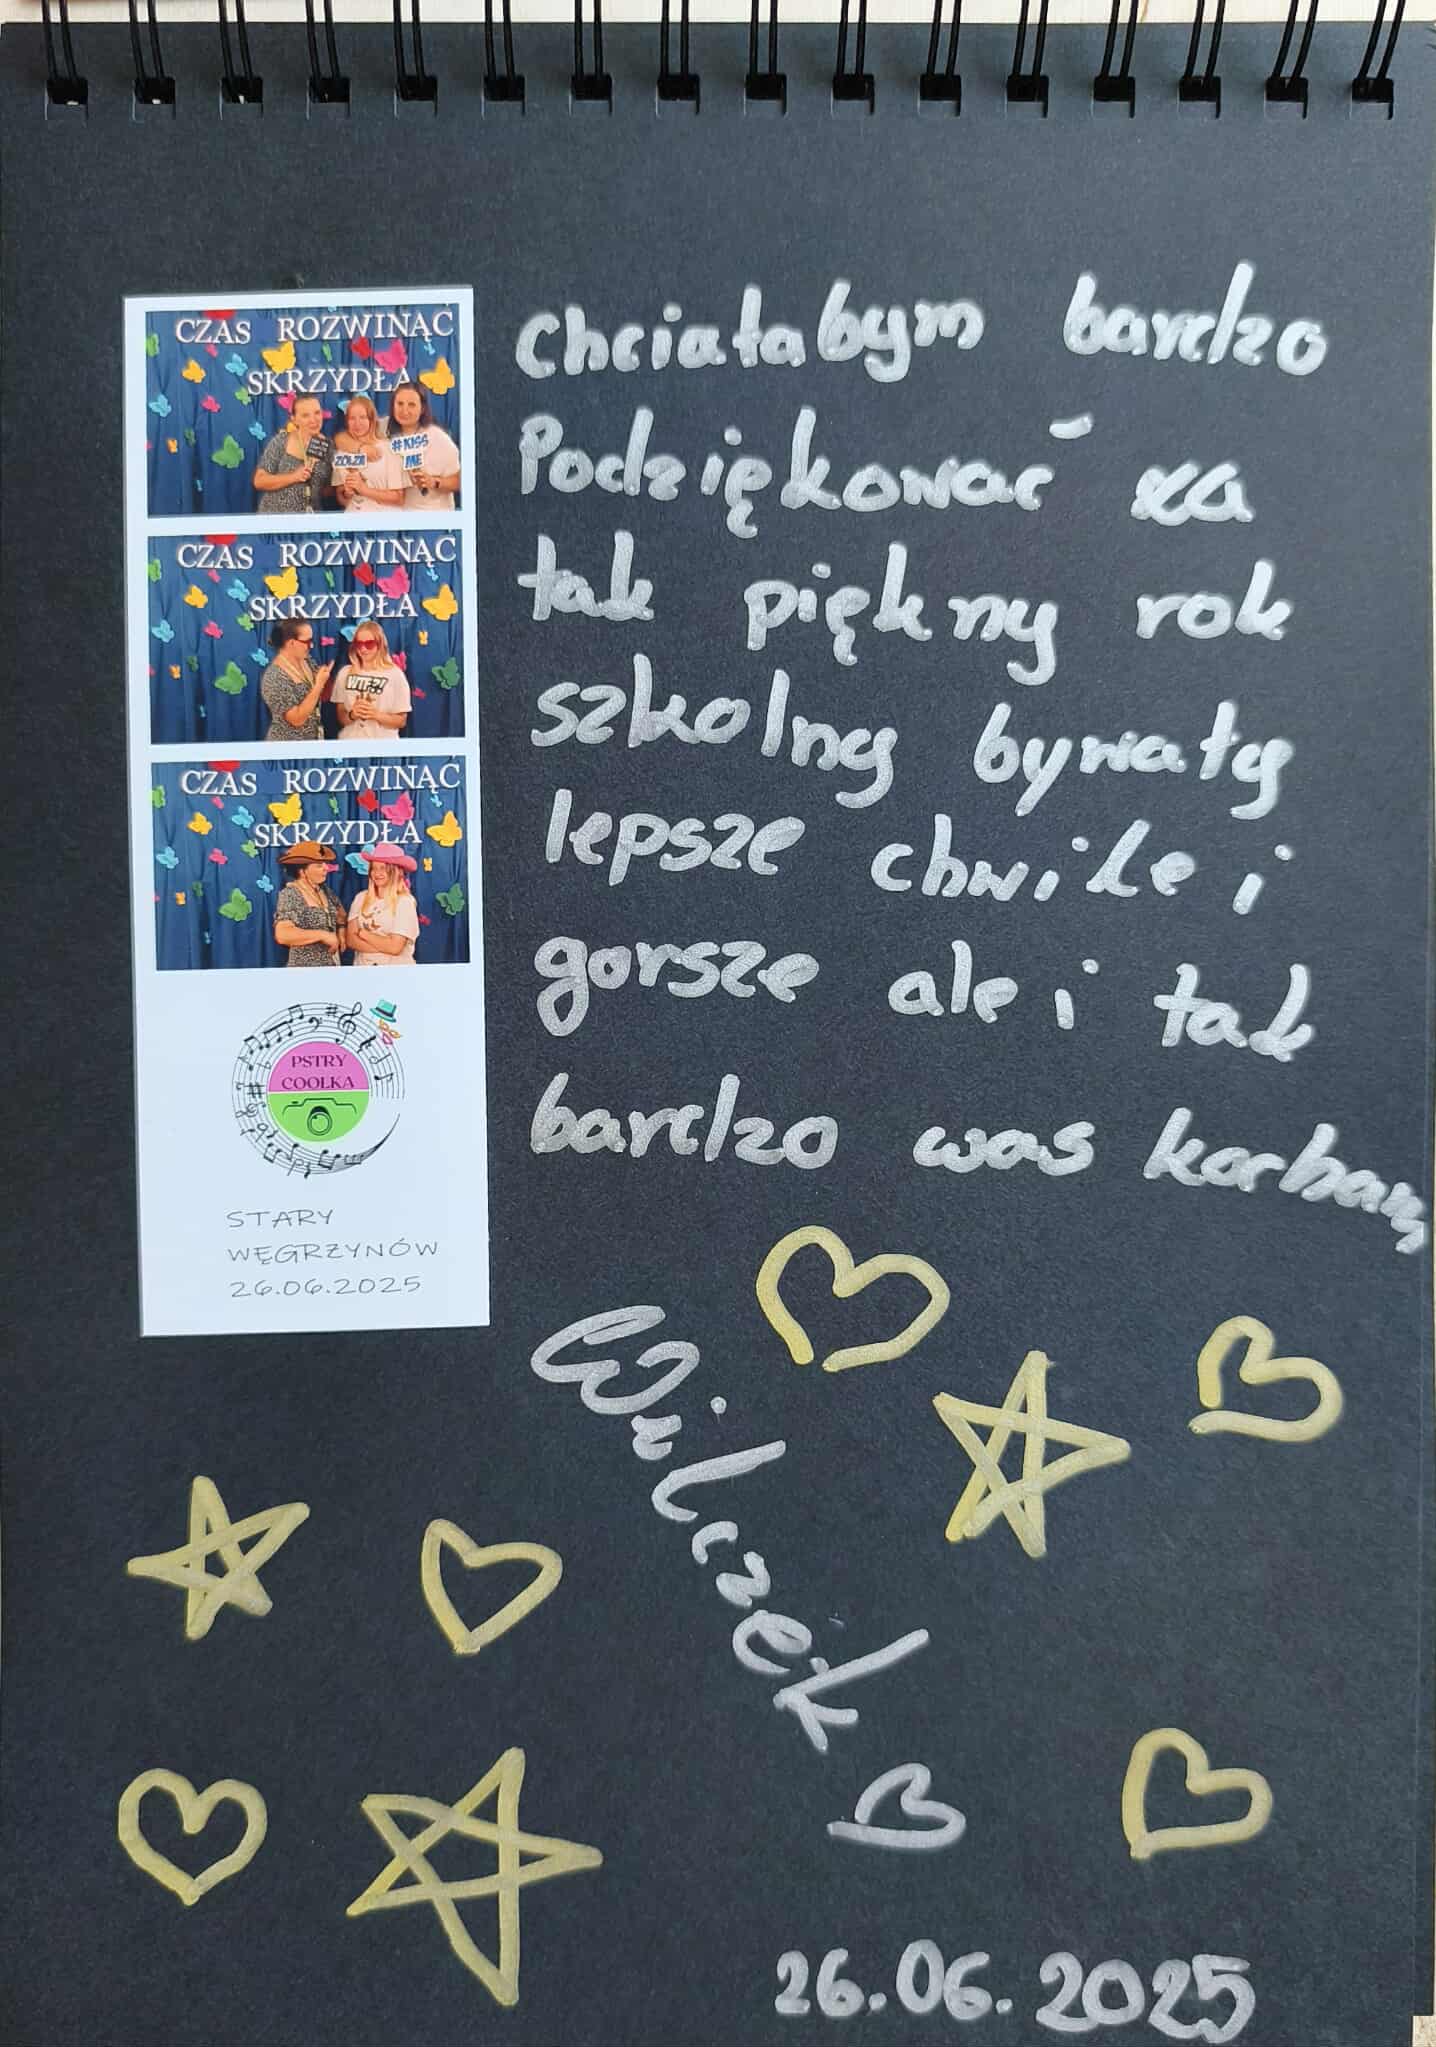 CZAS ROZWINĄĆ
SKRZYDŁA
#KISS
ME
ZOŁZA
CZAS ROZWINĄĆ
SKRZYDŁA
WTF?!
CZAS ROZWINĄĆ
SKRZYDŁA
PSTRY
COOLKA
STARY
WĘGRZYNÓW
26.06.2025
Chciałabym bardzo
Podziękować za
tak piękny rok
szkolny bywały
lepsze chwile i
gorsze ale i tak
bardzo was kocham
Wilczek
26.06.2025